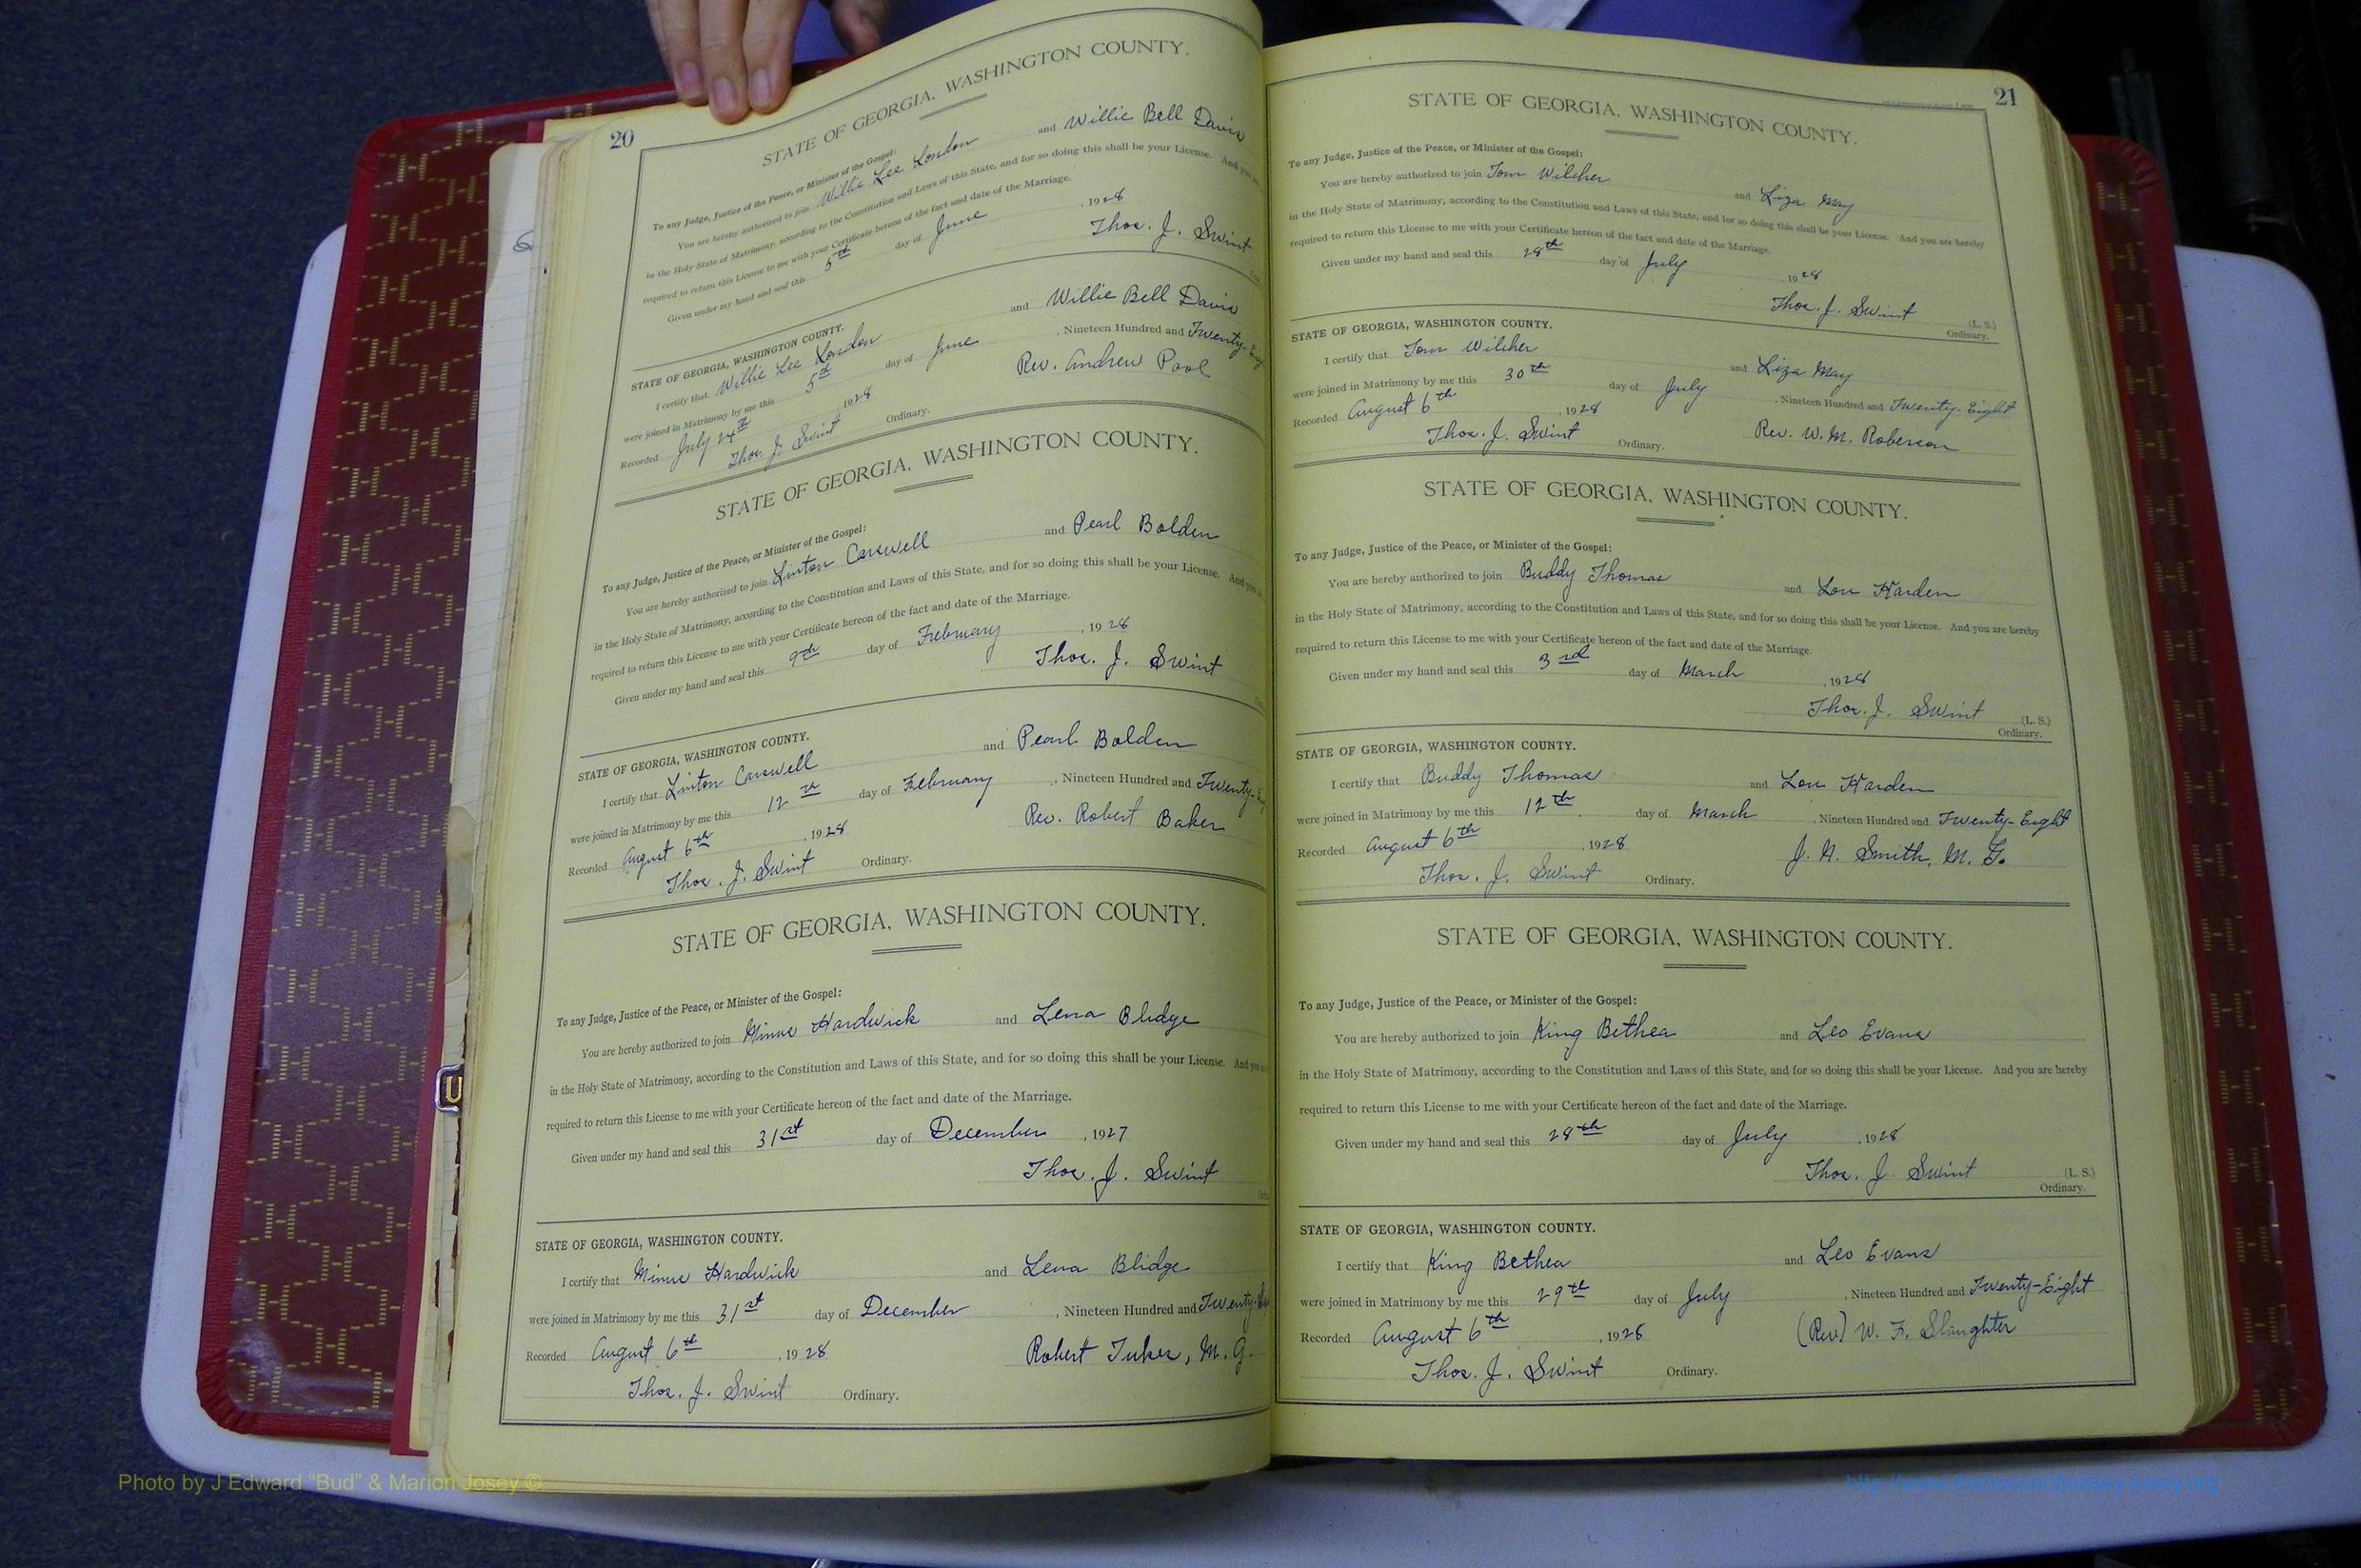 20
STATE OF GEORGIA, WASHINGTON COUNTY.
To any Judge, Justice of the Peace, or Minister of the Gospel:
You are hereby authorized to join Willie Lee London and Willie Bell Davis
in the Holy State of Matrimony, according to the Constitution and Laws of this State, and for so doing this shall be your License. And you
required to return this License to me with your Certificate hereon of the fact and date of the Marriage.
Given under my hand and seal this 5th day of June, 1928
Thos. J. Swint
STATE OF GEORGIA, WASHINGTON COUNTY.
I certify that Willie Lee London and Willie Bell Davis
were joined in Matrimony by me this 5th day of June, Nineteen Hundred and Twenty-
Recorded July 24th, 1928 Rev. Andrew Pool
Thos. J. Swint Ordinary.
STATE OF GEORGIA, WASHINGTON COUNTY.
To any Judge, Justice of the Peace, or Minister of the Gospel:
You are hereby authorized to join Linton Carswell and Pearl Bolden
in the Holy State of Matrimony, according to the Constitution and Laws of this State, and for so doing this shall be your License. And you
required to return this License to me with your Certificate hereon of the fact and date of the Marriage.
Given under my hand and seal this 9th day of February, 1928
Thos. J. Swint
STATE OF GEORGIA, WASHINGTON COUNTY.
I certify that Linton Carswell and Pearl Bolden
were joined in Matrimony by me this 12th day of February, Nineteen Hundred and Twenty-
Recorded August 6th, 1928 Rev. Robert Baker
Thos. J. Swint Ordinary.
STATE OF GEORGIA, WASHINGTON COUNTY.
To any Judge, Justice of the Peace, or Minister of the Gospel:
You are hereby authorized to join Minus Hardwick and Lena Blidge
in the Holy State of Matrimony, according to the Constitution and Laws of this State, and for so doing this shall be your License. And you
required to return this License to me with your Certificate hereon of the fact and date of the Marriage.
Given under my hand and seal this 31st day of December, 1927
Thos. J. Swint
STATE OF GEORGIA, WASHINGTON COUNTY.
I certify that Minus Hardwick and Lena Blidge
were joined in Matrimony by me this 31st day of December, Nineteen Hundred and Twenty-
Recorded August 6th, 1928 Robert Tukes, M. G.
Thos. J. Swint Ordinary.
21
STATE OF GEORGIA, WASHINGTON COUNTY.
To any Judge, Justice of the Peace, or Minister of the Gospel:
You are hereby authorized to join Tom Wilcher and Liza May
in the Holy State of Matrimony, according to the Constitution and Laws of this State, and for so doing this shall be your License. And you are hereby
required to return this License to me with your Certificate hereon of the fact and date of the Marriage.
Given under my hand and seal this 28th day of July, 1928
Thos. J. Swint (L. S.)
Ordinary.
STATE OF GEORGIA, WASHINGTON COUNTY.
I certify that Tom Wilcher and Liza May
were joined in Matrimony by me this 30th day of July, Nineteen Hundred and Twenty-Eight
Recorded August 6th, 1928 Rev. W. M. Roberson
Thos. J. Swint Ordinary.
STATE OF GEORGIA, WASHINGTON COUNTY.
To any Judge, Justice of the Peace, or Minister of the Gospel:
You are hereby authorized to join Buddy Thomas and Lou Harden
in the Holy State of Matrimony, according to the Constitution and Laws of this State, and for so doing this shall be your License. And you are hereby
required to return this License to me with your Certificate hereon of the fact and date of the Marriage.
Given under my hand and seal this 3rd day of March, 1928
Thos. J. Swint (L. S.)
Ordinary.
STATE OF GEORGIA, WASHINGTON COUNTY.
I certify that Buddy Thomas and Lou Harden
were joined in Matrimony by me this 12th day of March, Nineteen Hundred and Twenty-Eight
Recorded August 6th, 1928 J. N. Smith, M. G.
Thos. J. Swint Ordinary.
STATE OF GEORGIA, WASHINGTON COUNTY.
To any Judge, Justice of the Peace, or Minister of the Gospel:
You are hereby authorized to join King Bethea and Leo Evans
in the Holy State of Matrimony, according to the Constitution and Laws of this State, and for so doing this shall be your License. And you are hereby
required to return this License to me with your Certificate hereon of the fact and date of the Marriage.
Given under my hand and seal this 28th day of July, 1928
Thos. J. Swint (L. S.)
Ordinary.
STATE OF GEORGIA, WASHINGTON COUNTY.
I certify that King Bethea and Leo Evans
were joined in Matrimony by me this 29th day of July, Nineteen Hundred and Twenty-Eight
Recorded August 6th, 1928 (Rev) W. F. Slaughter
Thos. J. Swint Ordinary.
Photo by J Edward “Bud” & Marion Josey ©